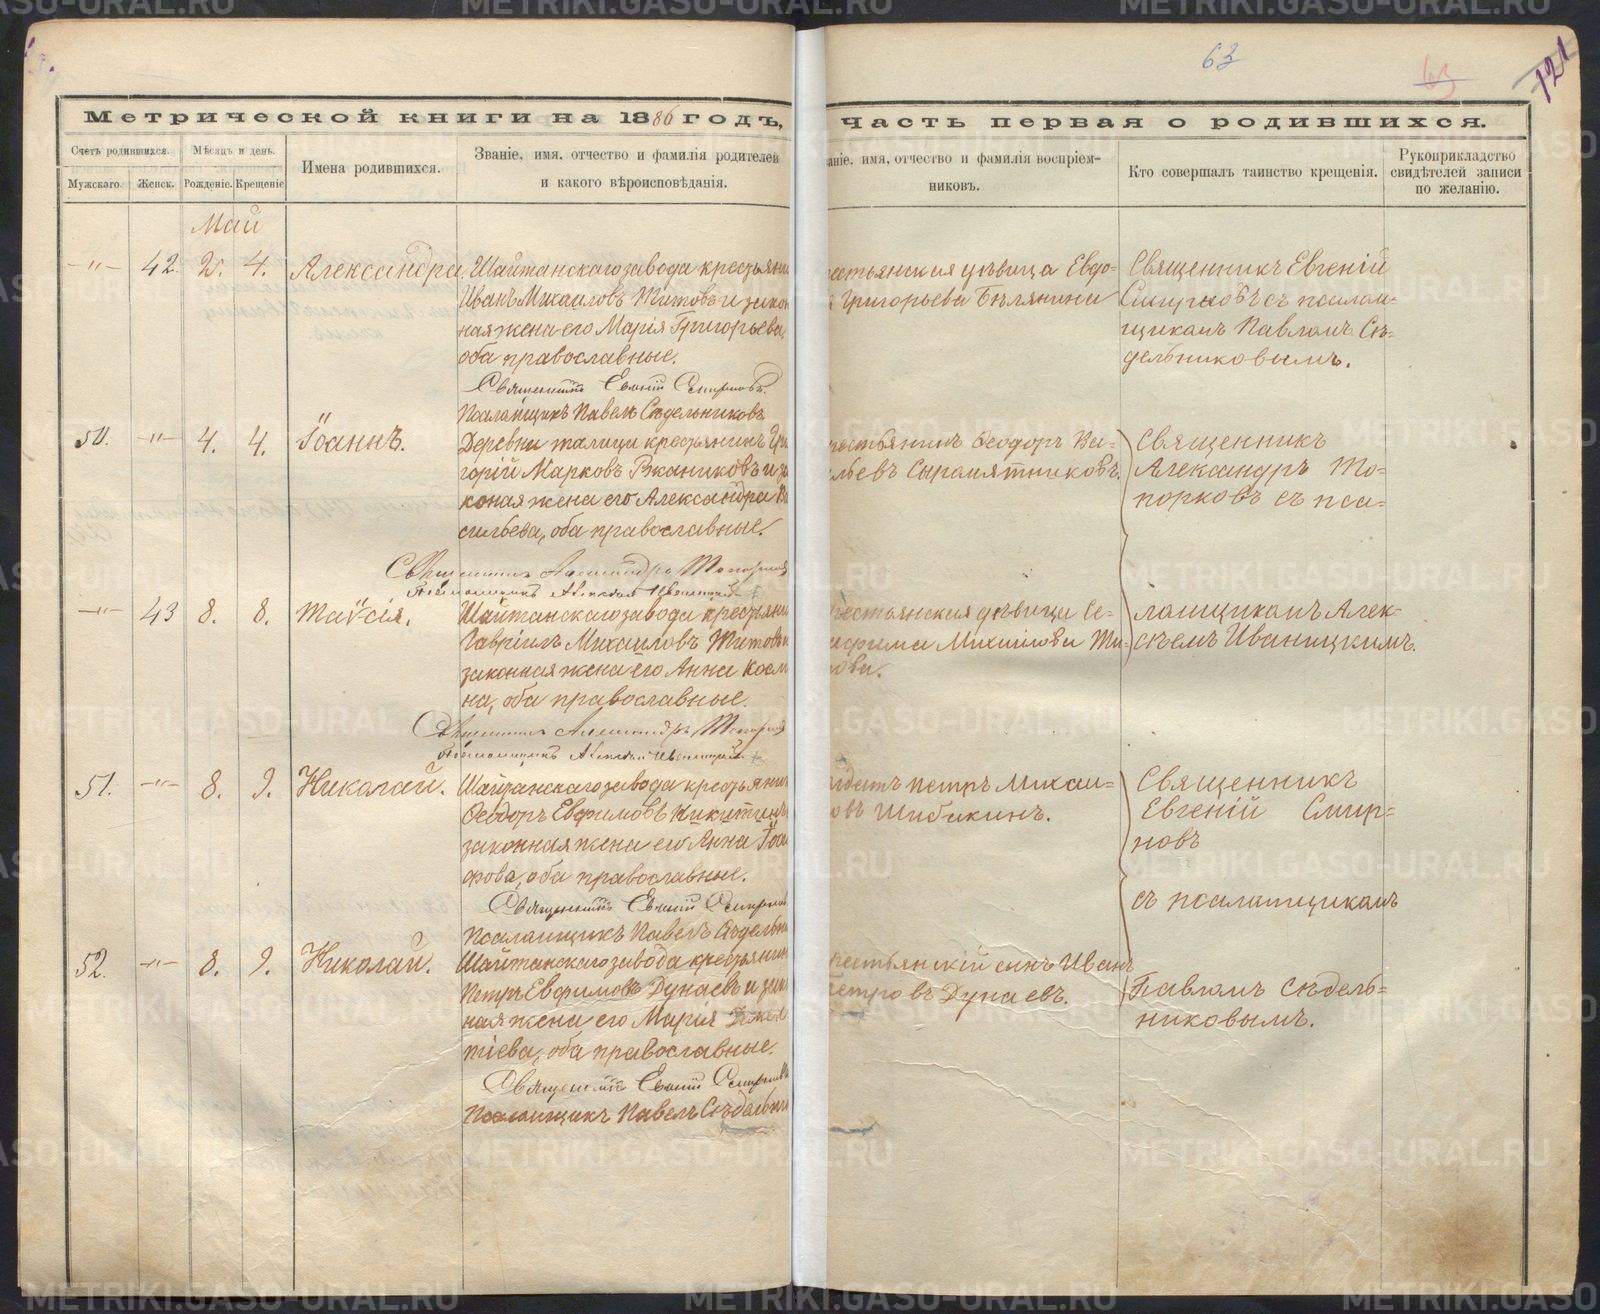 63
63
121
Метрической книги на 1886 годъ,
Часть первая о родившихся.
Счетъ родившихся.
Мужскаго.
Женск.
Мѣсяцъ и день.
Рожденіе.
Крещеніе
Имена родившихся.
Званіе, имя, отчество и фамилія родителей
и какого вѣроисповѣданія.
аніе, имя, отчество и фамилія воспріем-
никовъ.
Кто совершалъ таинство крещенія.
Рукоприкладство
свидѣтелей записи
по желанію.
Май
-"- 42 2. 4. Александра
Шайтанскаго завода крестьяни
Иванъ Михаиловъ Титовъ и закон
ная жена его Марія Григорьева,
оба православные.
Священникъ Евгеній Смирновъ.
Псаломщикъ Павелъ Сѣдельниковъ
естьянская дѣвица Евдо-
я Григорьева Бѣлянина
Священникъ Евгеній
Смирновъ съ псалом-
щикомъ Павломъ Сѣ-
дельниковымъ.
50. -"- 4. 4. Іоаннъ.
Деревни талицы крестьянинъ Гри
горій Марковъ Ржанниковъ и за
коная жена его Александра Ва
сильева, оба православные.
Священникъ Александръ Топорковъ
Псаломщикъ Алексѣй Иваницкій
рестьянинъ Ѳеодоръ Ва-
льевъ Сыромятниковъ.
Священникъ
Александръ То-
порковъ съ пса-
-"- 43 8. 8. Таисія.
Шайтанскаго завода крестьяни
Гавріилъ Михаиловъ Титовъ и
законная жена его Анна Косми
на, оба православные.
Священникъ Александръ Топорков
Псаломщикъ Алексѣй Иваницкій
рестьянская дѣвица Се-
афима Михаилова Ти-
това.
ломщикомъ Алек-
сѣемъ Иваницкимъ.
51. -"- 8. 9. Николай.
Шайтанскаго завода крестьянин
Ѳеодоръ Евфимовъ Никитинъ
законная жена его Анна Іоа
фова, оба православные.
Священникъ Евгеній Смирнов
Псаломщикъ Павелъ Сѣдельни
лдатъ Петръ Михаи-
овъ Шибакинъ.
Священникъ
Евгеній Смир-
новъ
съ псаломщикомъ
52. -"- 8. 9. Николай.
Шайтанскаго завода крестьянин
Петръ Евфимовъ Дунаевъ и закон
ная жена его Марія
тіева, оба православные.
Священникъ Евгеній Смирновъ
Псаломщикъ Павелъ Сѣдельни
рестьянскій сынъ Иван
Петровъ Дунаевъ.
Павломъ Сѣдель-
никовымъ.
METRIKI.GASO-URAL.RU